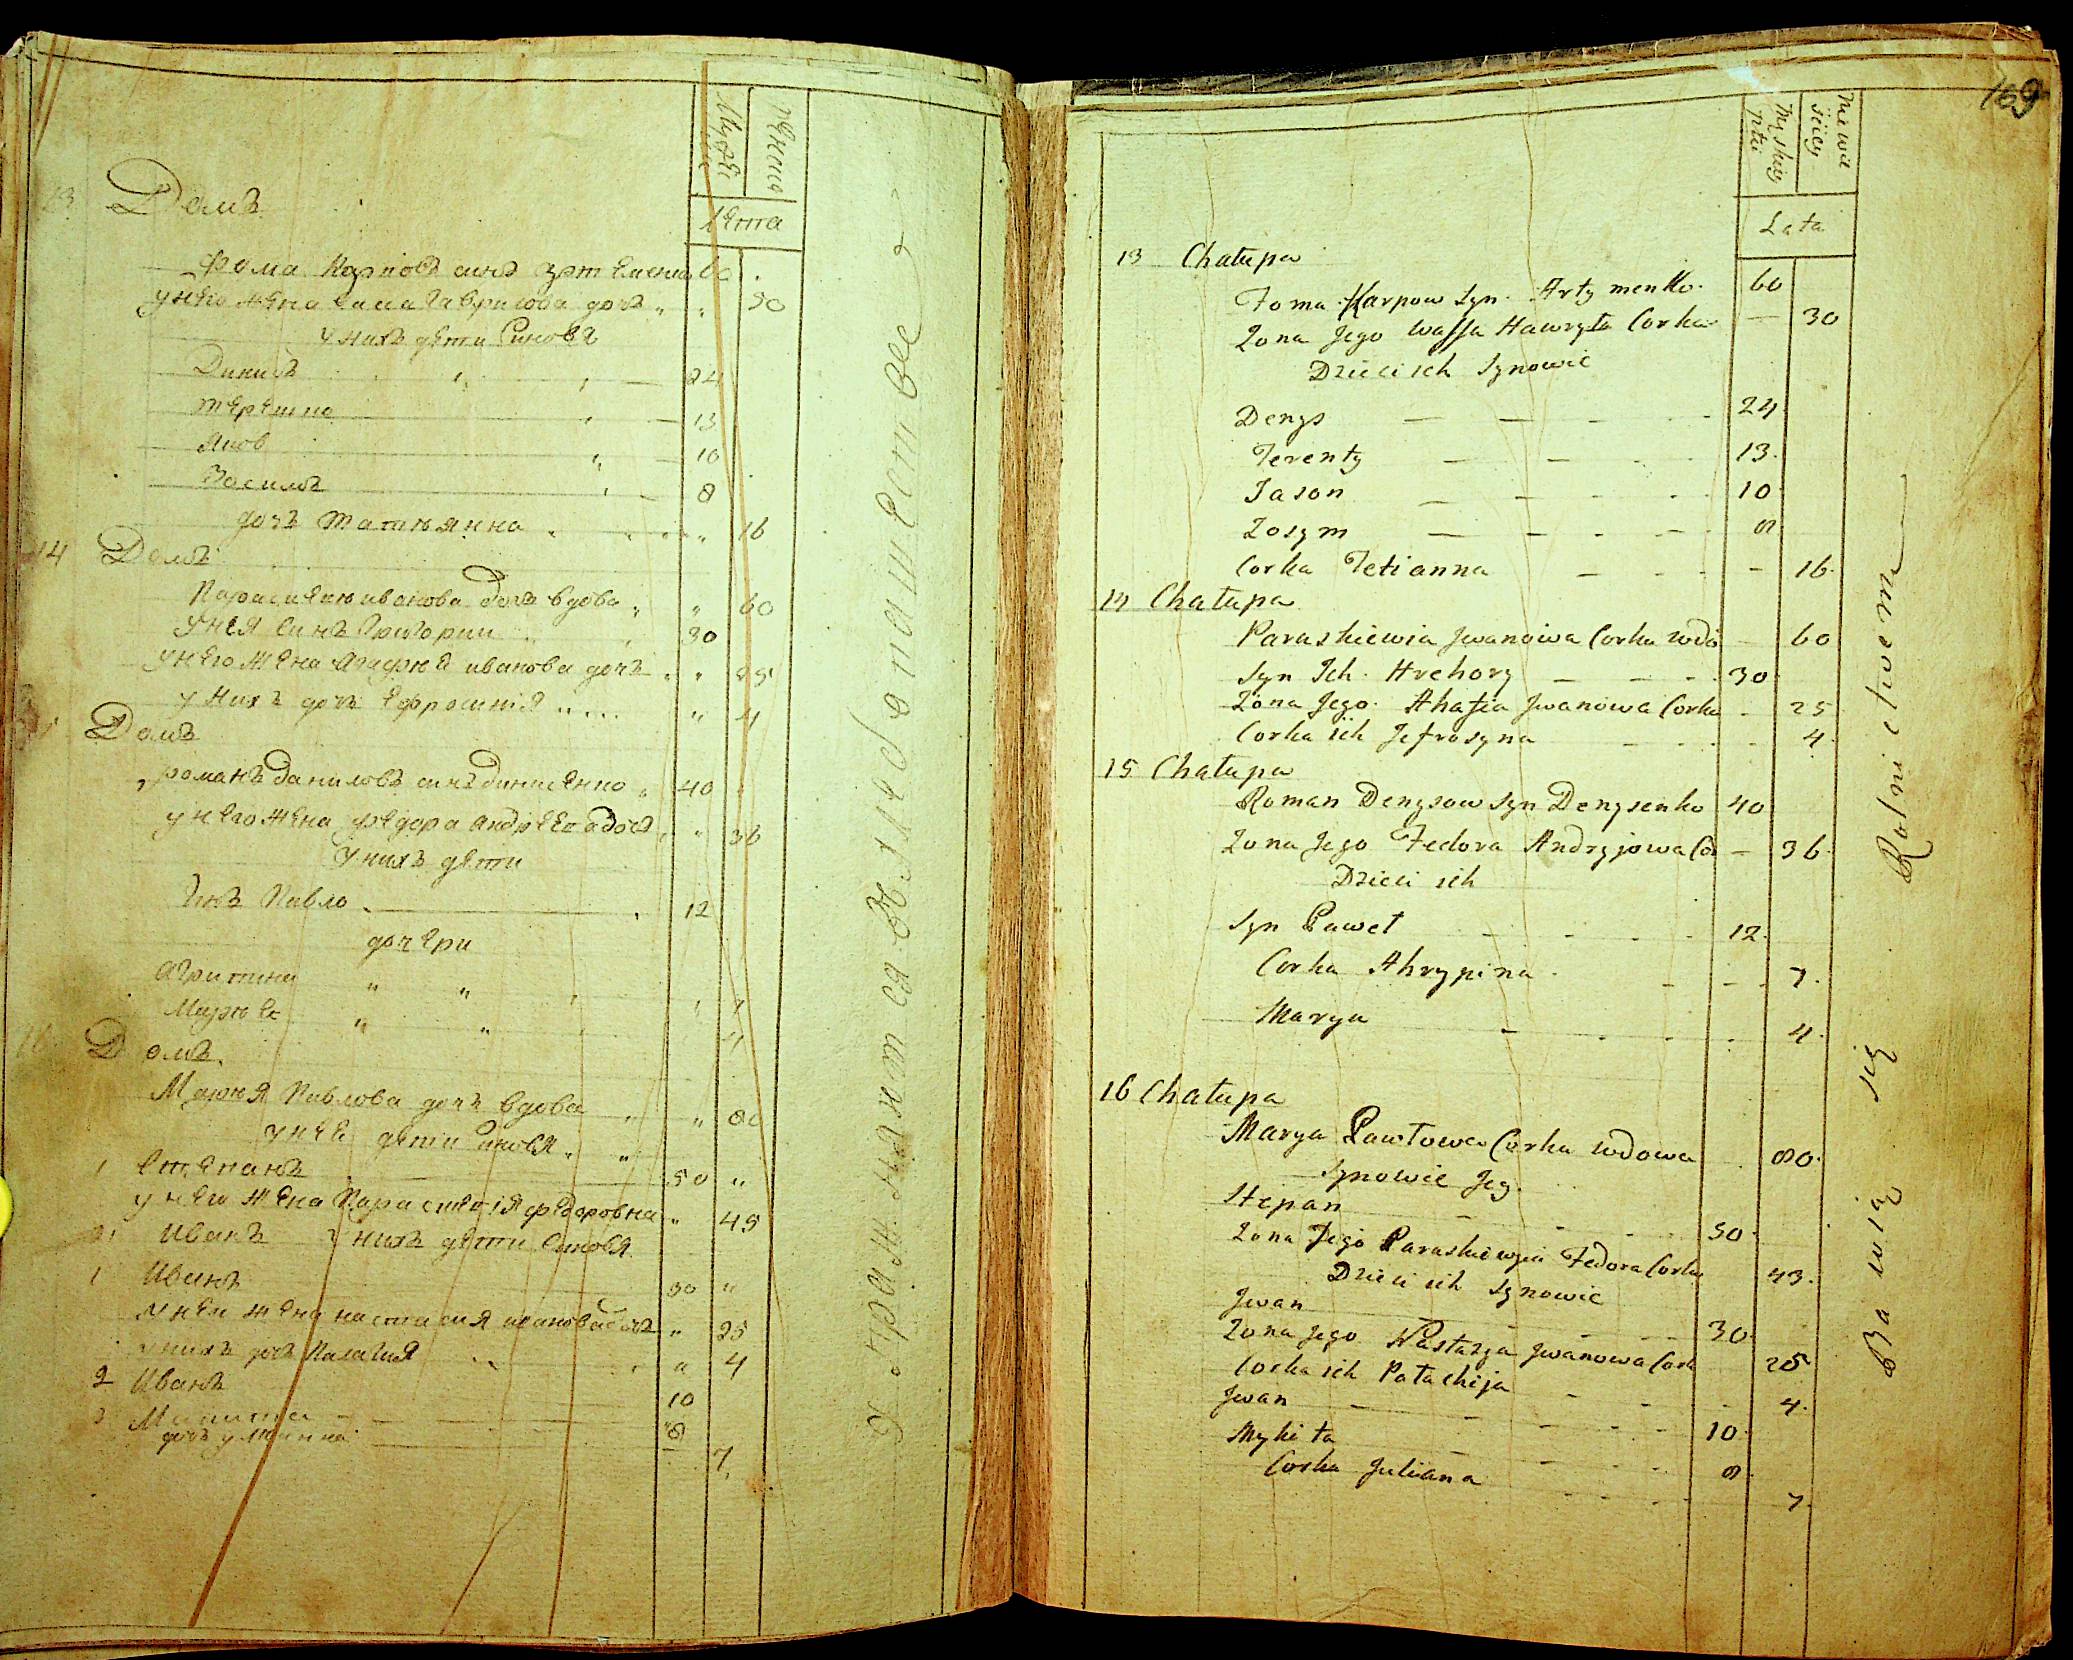 Мужеска
Женска
лета
13 Домъ
Фома Карповъ синъ Артеменко 60
У него жена Васа Гаврилова дочъ 50
У нихъ дети Синовя
Динисъ 24
Терешко 13
Ясов 10
Зосимъ 8
дочъ Татиянна 16
14 Домъ
Параскевия иванова дочъ вдова 60
У нея Синъ Григории 30
У него жена Агафия иванова дочъ 25
У нихъ дочъ Ефросиния 4
Домъ
романъ Даниловъ синъ Динисенко 40
У него жена федора Андреева дочъ 36
У нихъ дети
Синъ Павло 12
дочери
Агрипина
Мария 4
16 Домъ
Мария Павлова дочъ вдова 80
У нее дети Синовя
1 Степанъ 50
У него жена Параскевия федоровна 45
2 Иванъ У нихъ дети Синовя
1 Иванъ 30
У него жена настасия иванова дочъ 25
У нихъ дочъ Палагия 4
2 Иванъ 10
3 Микита 8
дочъ улиянна 7
Упражняются в хлебопашестве
169
Męskiey płci
Niewieściey
Lata
13 Chałupa
Foma Karpow Syn Artymenko 60
Zona Jego Wassa Hawryła Corka 30
Dzieci ich Synowie
Denys 24
Terenty 13
Jason 10
Zosym 8
Corka Tetianna 16
14 Chałupa
Paraskiewia Jwanowa Corka wdo 60
Syn Ich Hrehory 30
Zona Jego Ahafia Jwanowa Corka 25
Corka ich Jefrosyna 4
15 Chałupa
Roman Denysow Syn Denysenko 40
Zona Jego Fedora Andryjowa Co 36
Dzieci ich
Syn Paweł 12
Corka Ahrypina 7
Marya 4
16 Chałupa
Marya Pawłowa Corka wdowa 80
Synowie Jey
Stepan 50
Zona Jego Paraskiewyia Fedora Corka 43
Dzieci ich Synowie
Jwan 30
Zona Jego Nastazya Jwanowa Cork 25
Corka ich Pałachija 4
Jwan 10
Mykita 8
Corka Juliana 7
Bawią się Rolnictwem